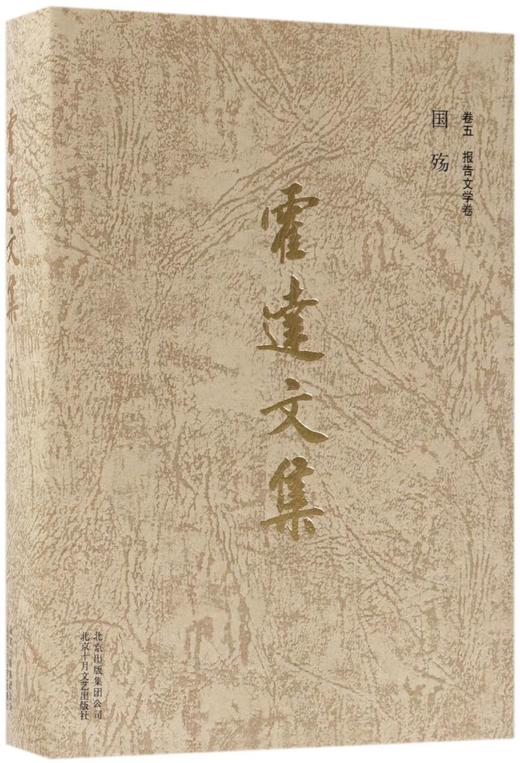 卷五 报告文学卷
国殇
霍达文集
北京出版集团公司
北京十月文艺出版社
霍达文集